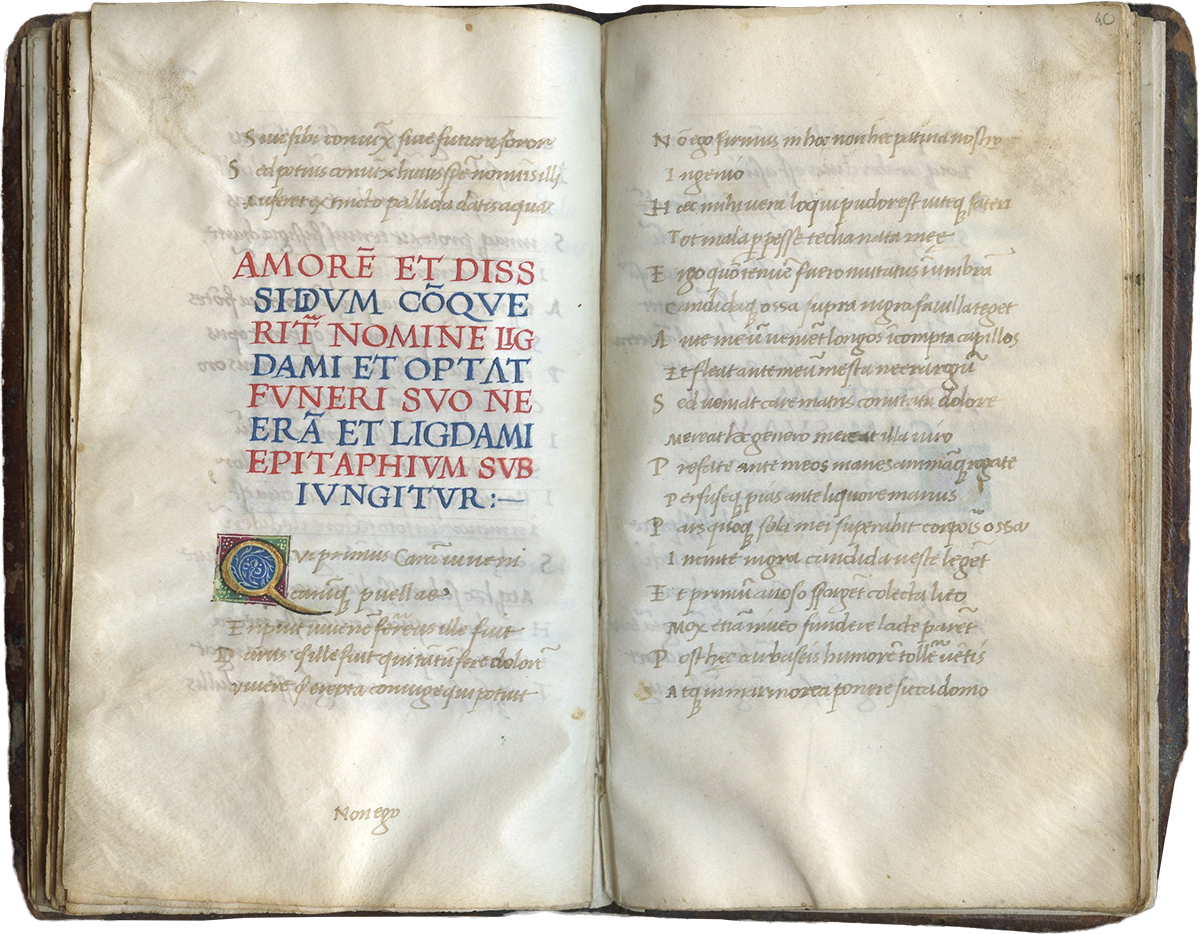 S iue sibi coniūx siue futura soror
S ed potius coniūx huius spē nominis illi
auferet extincto pallida ditis aqua
AMORĒ ET DISS
SIDIVM CŌQVE
RIT̄ NOMINE LIG
DAMI ET OPTAT
FVNERI SVO NE
ERĀ ET LIGDAMI
EPITAPHIVM SVB
IVNGITVR:—
Qui primus Carā iuueni
carumq puellae
E ripuit iuuenē ferreus ille fuit
D urus & ille fuit qui tātū ferre dolorē
viuere & erepta coniuge qui potuit
Non ego
40
N ō ego firmus in hoc non hec patiētia nostro
I ngenio
H ec mihi vera loqui pudor est viteq fateri
Tot mala ppesse tedia nata mee
E rgo quō tenuē fuero mutatus ī umbrā
candidaq ossa supra nigra fauilla teget
A nte meū veniet longos īcompta capillos
Et fleat ante meū mesta neera rogū
S ed veniat care matris comitata dolore
Mereat hec genero mereat illa viro
P refate ante meos manes animāq rogate
Perfuseq pias ante liquore manus
P ars quoq sola mei superabit corporis ossa
I ncincte nigra candida veste legēt
E t primū anoso spargēt colecta lieo
Mox etiā niueo fundere lacte parēt
P ost hec carbaseis humorē tollere vētis
Atq in marmorea ponere sicca domo